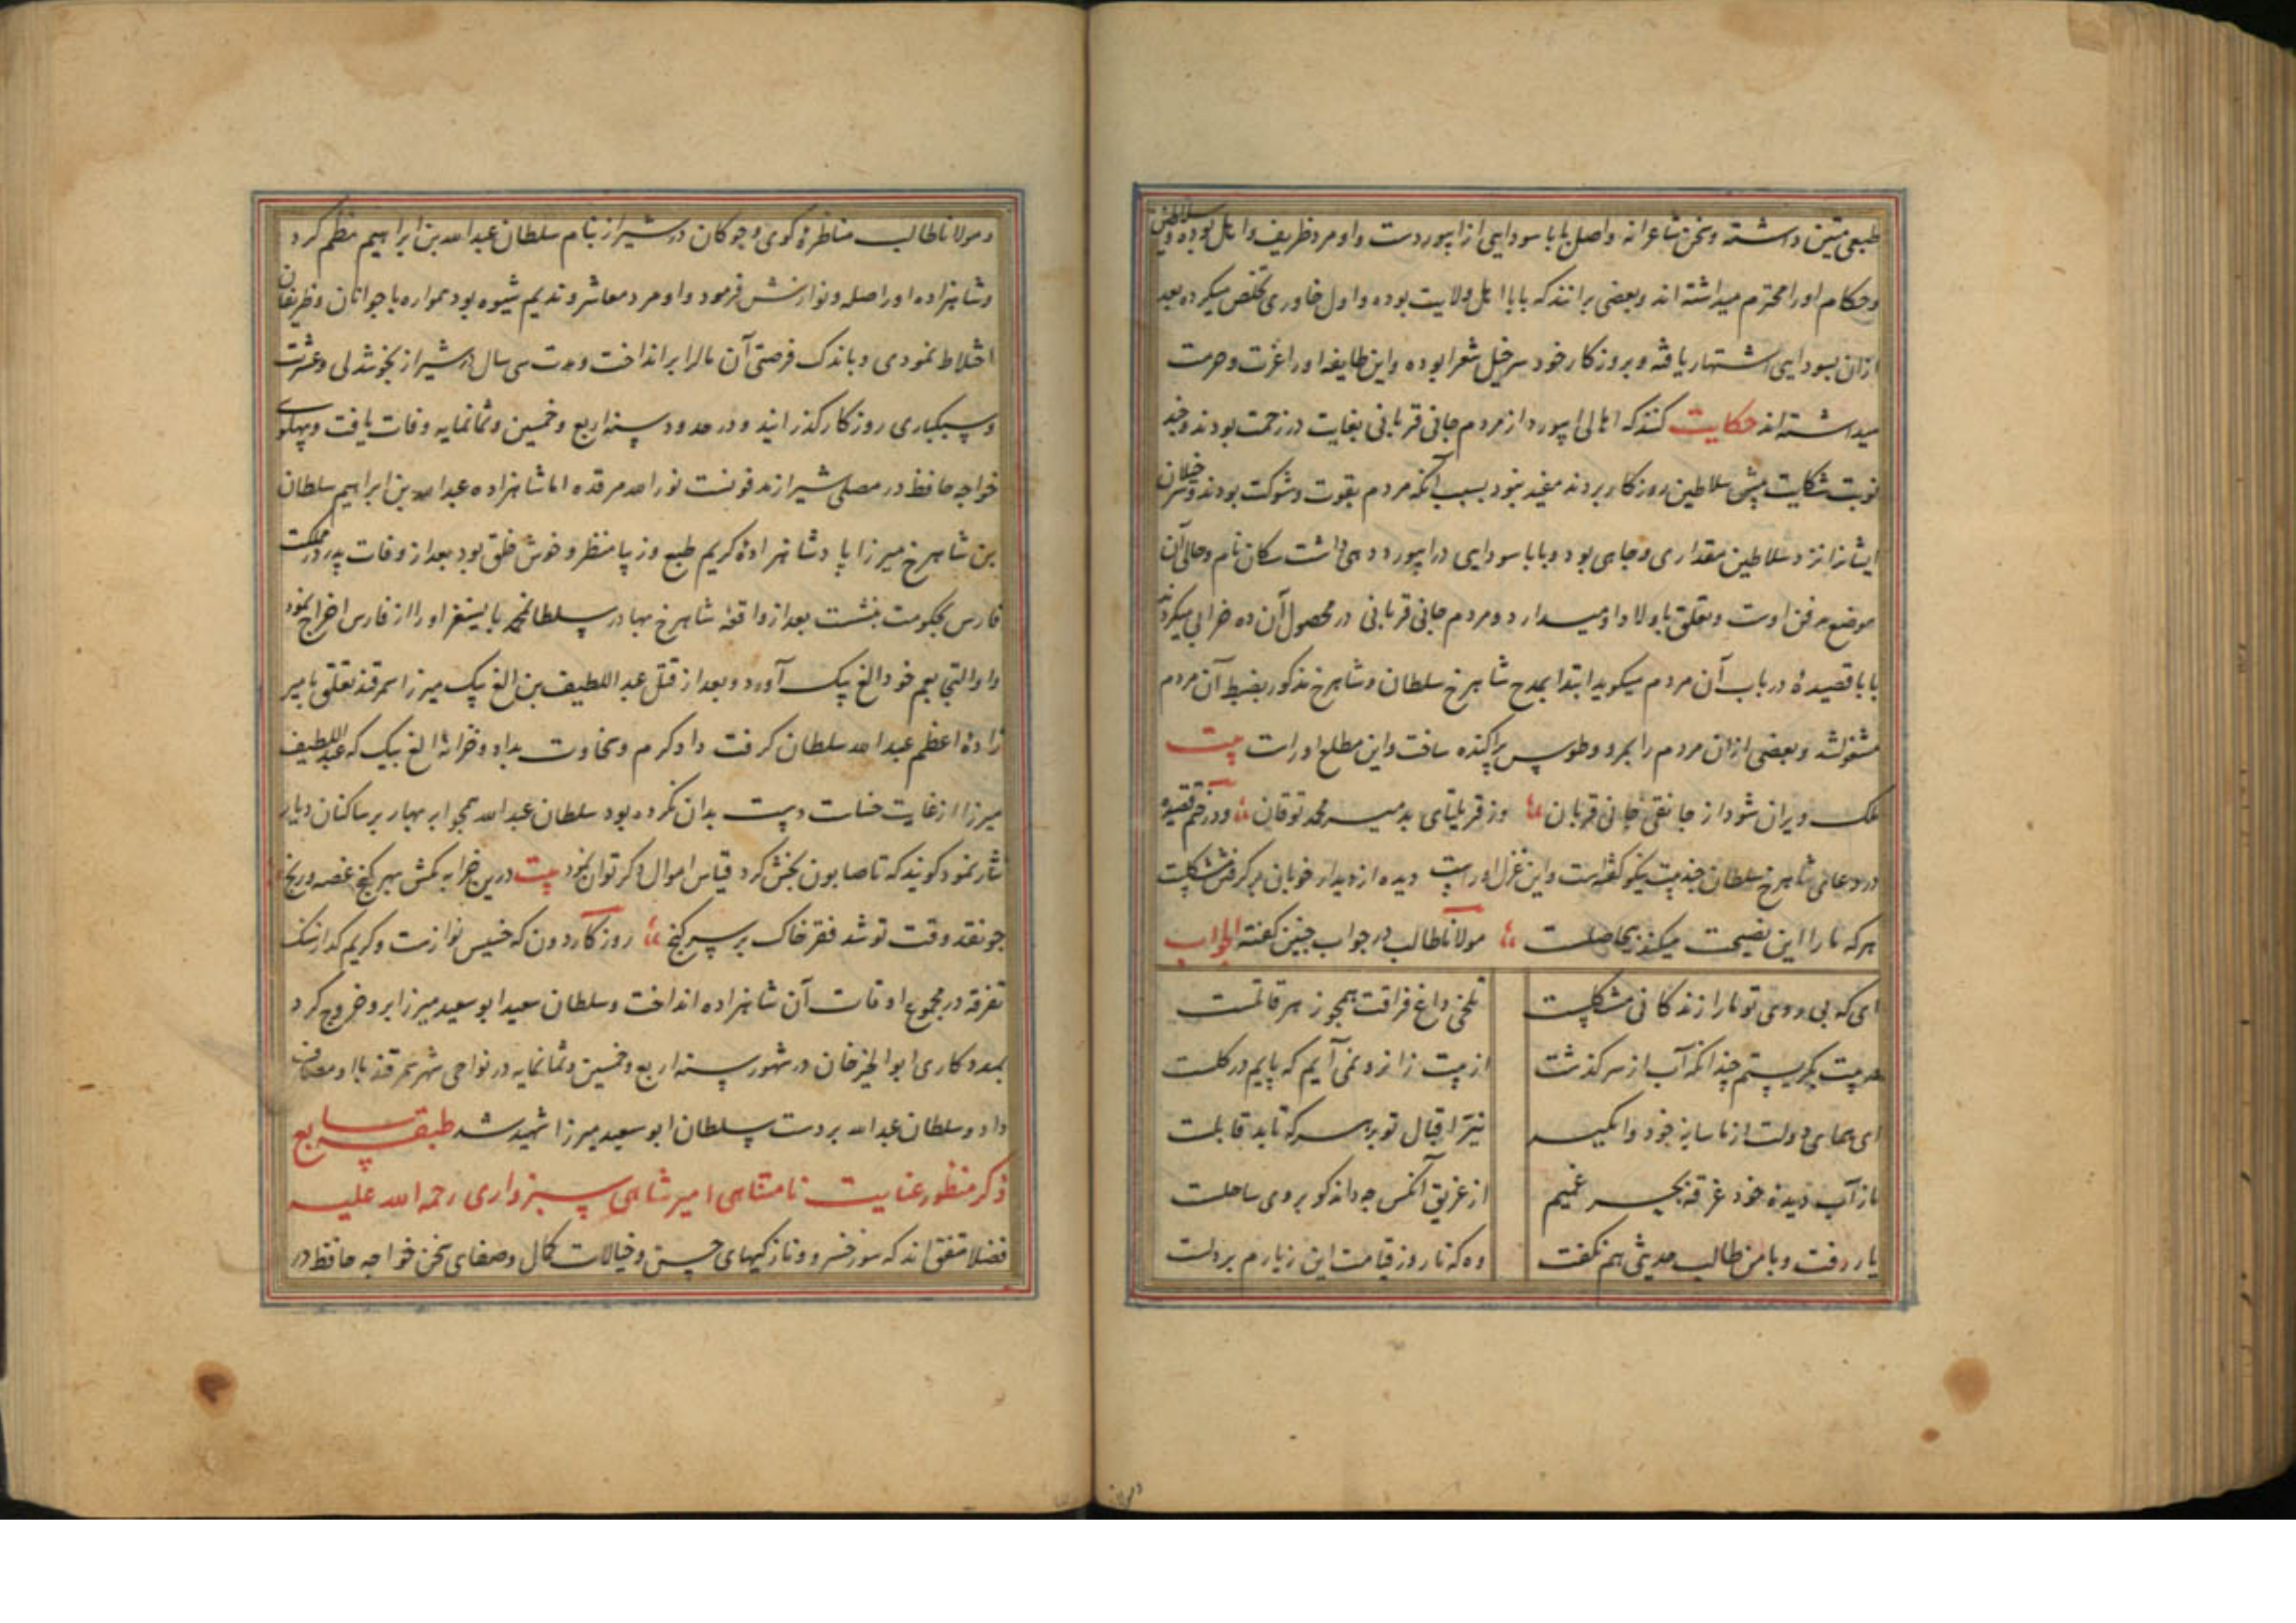 طبعی متین داشته و سخن شاعرانه و اصل بابا سودایی از ابیوردست و او مرد ظریف و اهل بوده و سلاطین
و حکام او را محترم میداشته اند و بعضی برانند که بابا اهل ولایت بوده و اول خاوری تخلص میکرده بعد
ازان بسودایی اشتهار یافته و بروزکار خود سرخیل شعرا بوده و این طایفه او را عزت و حرمت
میداشته اند حکایت کنند که اهالی ابیورد از مردم جانی قربانی بغایت در زحمت بودند و چند
نوبت شکایت پیش سلاطین روزکار بردند مفید نبود بسبب آنکه مردم بقوت و شوکت بودند و سرخیلان
ایشانرا نزد سلاطین مقداری و جاهی بود و بابا سودایی در ابیورد دهی داشت سکان نام و حالی آن
موضع مدفن اوست و تعلق باولاد او میدارد و مردم جانی قربانی در محصول آن ده خرابی میکردند
بابا قصیدهٔ در باب آن مردم میکوید ابتدا بمدح شاهرخ سلطان و شاهرخ مذکور بضبط آن مردم
مشغول شد و بعضی ازان مردم را بمرو و طوس پراکنده ساخت و این مطلع اوراست بیت
ملک ویران شود از جانقی جانی قربان وز قریلتای بد میر محمد توقان و در ختم قصیده
در دعای شاهرخ سلطان چند بیت نیکو کفته است و این غزل اوراست دیده از دیدار خوبان برکرفتن مشکلست
هرکه ما را این نصیحت میکند بیحاصلست مولانا طالب در جواب چنین کفته الجواب
ای که بی روی تو ما را زندکانی مشکلست تلخی داغ فراقت همچو زهر قاتلست
بیت بکریستم چندانکه آب از سر کذشت از بیت زانرو نمی آیم که پایم در کلست
ای همای دولت از ما سایهٔ خود وامکیر نیّر اقبال تو بر هر سر که تابد قابلست
ما ز آب دیدهٔ خود غرقه بحر غمیم از غریق آنکس چه داند کو بروی ساحلست
یار رفت و با من طالب حدیثی هم نکفت وه که تا روز قیامت این زیارم بر دلست
و مولانا طالب مناظرهٔ کوی و چوکان در شیراز بنام سلطان عبدالله بن ابراهیم نظم کرد
و شاهزاده او را صله و نوازش فرمود و او مرد معاشر و ندیم شیوه بود همواره با جوانان و ظریفان
اختلاط نمودی و باندک فرصتی آن مال را برانداخت و مدت سی سال در شیراز بخوشدلی و عشرت
و سبکباری روزکار کذرانید و در حدود سنه اربع و خمسین و ثمانمایه وفات یافت و بپهلوی
خواجه حافظ در مصلی شیراز مدفونست نورالله مرقده اما شاهزاده عبدالله بن ابراهیم سلطان
بن شاهرخ میرزا پادشاهزادهٔ کریم طبع و زیبا منظر و خوش خلق بود بعد از وفات پدر در مملکت
فارس بحکومت بنشست بعد از واقعهٔ شاهرخ بهادر سلطان محمد بایسنغر او را از فارس اخراج نمود
و او التجا بعم خود الغ بیک آورد و بعد از قتل عبداللطیف بن الغ بیک میرزا سمرقند تعلق بامیر
زادهٔ اعظم عبدالله سلطان کرفت داد کرم و سخاوت بداد و خزانهٔ الغ بیک که عبداللطیف
میرزا از غایت خساست دست بدان نکرده بود سلطان عبدالله همچو ابر بهار بر ساکنان دیار
نثار نمود کویند که تا صابون بخش کرد قیاس اموال دکر توان نمود بیت درین خرابه مکش بهر کنج غصه و رنج
چو نقد وقت تو شد فقر خاک بر سر کنج روزکار دون که خسیس نوازست و کریم کداز سنک
تفرقه در مجموع اوقات آن شاهزاده انداخت و سلطان سعید ابوسعید میرزا برو خروج کرد
بمددکاری ابوالخیر خان در شهور سنه اربع و خمسین و ثمانمایه در نواحی شهر سمرقند با او مصاف
داد و سلطان عبدالله بر دست سلطان ابوسعید میرزا شهید شد طبقه سابع
ذکر منظور عنایت نامتناهی امیر شاهی سبزواری رحمه الله علیه
فضلا متفق اند که سوز خسرو و نازکیهای حسن و خیالات کمال و صفای سخن خواجه حافظ در